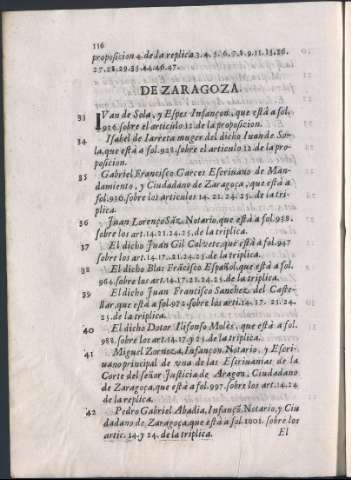 116
proposicion 4. de la replica 3. 4. 5. 6. 7. 8. 9. 11. 15. 26.
27. 28. 29. 35. 44. 46. 47.
DE ZARAGOZA
33 IVan de Sola, y Espes Infançon, que està a fol.
926. sobre el articulo 12 de la proposicion.
34 Isabel de Iarreta muger del dicho Iuan de So-
la, que està a fol. 928. sobre el articulo 12 de la pro-
posicion.
35 Gabriel Francisco Garces Escriuano de Man-
damiento, y Ciudadano de Zaragoça, que està a
fol. 930. sobre los articulos 14. 21. 24. 25. de la tri-
plica.
36 Juan Lorenço Sãz, Notario, que està a fol. 938.
sobre los art. 14. 21. 24. 25. de la triplica.
37 El dicho Juan Gil Calvete, que està a fol. 947
sobre los art. 14. 17. 21. 24. 25. de la triplica.
38 El dicho Blas Frãcisco Español, que està a fol.
964. sobre los art. 14. 17. 21. 24. 25. de la triplica.
39 El dicho Juan Francisco Sanchez del Caste-
llar, que està a fol. 972. sobre los art. 14. 17. 21. 24.
25. de la triplica.
40 El dicho Dotor Ilifonso Moles, que està a fol.
988. sobre los art. 14. 17. y 25. de la triplica.
41 Miguel Zornoza, Infançon, Notario, y Escri-
uano principal de vna de las Escriuanias de la
Corte del señor Justicia de Aragon, Ciudadano
de Zaragoça, que està a fol. 997. sobre los art. 14. 24
de la replica.
42 Pedro Gabriel Abadia, Infançõ, Notario, y Ciu
dadano de Zaragoça, que està a fol. 1001. sobre los
artic. 14. y 24. de la triplica.
El